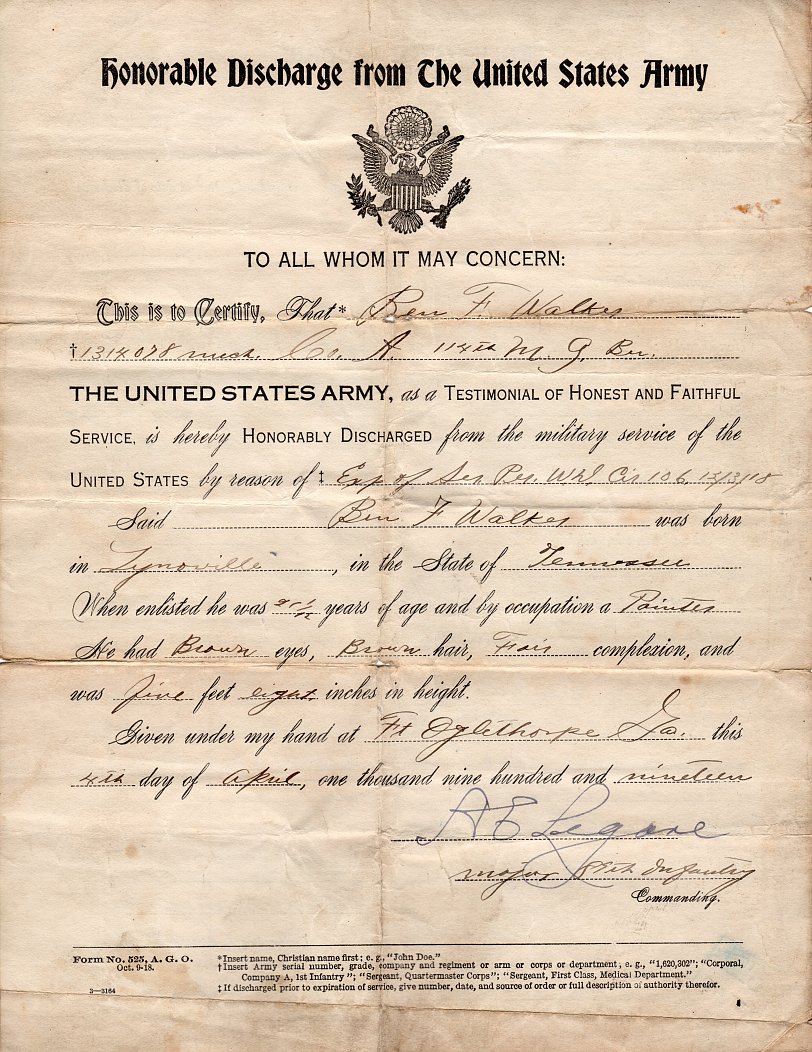 Honorable Discharge from The United States Army
TO ALL WHOM IT MAY CONCERN:
This is to Certify, That* Ben F. Walker
†1314078 Mech. Co. A. 114th M. G. Bn.
THE UNITED STATES ARMY, as a TESTIMONIAL OF HONEST AND FAITHFUL
SERVICE, is hereby HONORABLY DISCHARGED from the military service of the
UNITED STATES by reason of ‡ Exp of Ser Per. W.D. Cir 106 12/3/18
Said Ben F Walker was born
in Lynnville, in the State of Tennessee
When enlisted he was 21 1/12 years of age and by occupation a Painter
He had Brown eyes, Brown hair, Fair complexion, and
was five feet eight inches in height.
Given under my hand at Ft Oglethorpe Ga. this
4th day of April, one thousand nine hundred and nineteen
A E Legare
Major Infantry
Commanding.
Form No. 525, A. G. O.
Oct. 9-18.
3—3164
*Insert name, Christian name first; e. g., "John Doe."
†Insert Army serial number, grade, company and regiment or arm or corps or department; e. g., "1,620,302"; "Corporal,
Company A, 1st Infantry"; "Sergeant, Quartermaster Corps"; "Sergeant, First Class, Medical Department."
‡If discharged prior to expiration of service, give number, date, and source of order or full description of authority therefor.